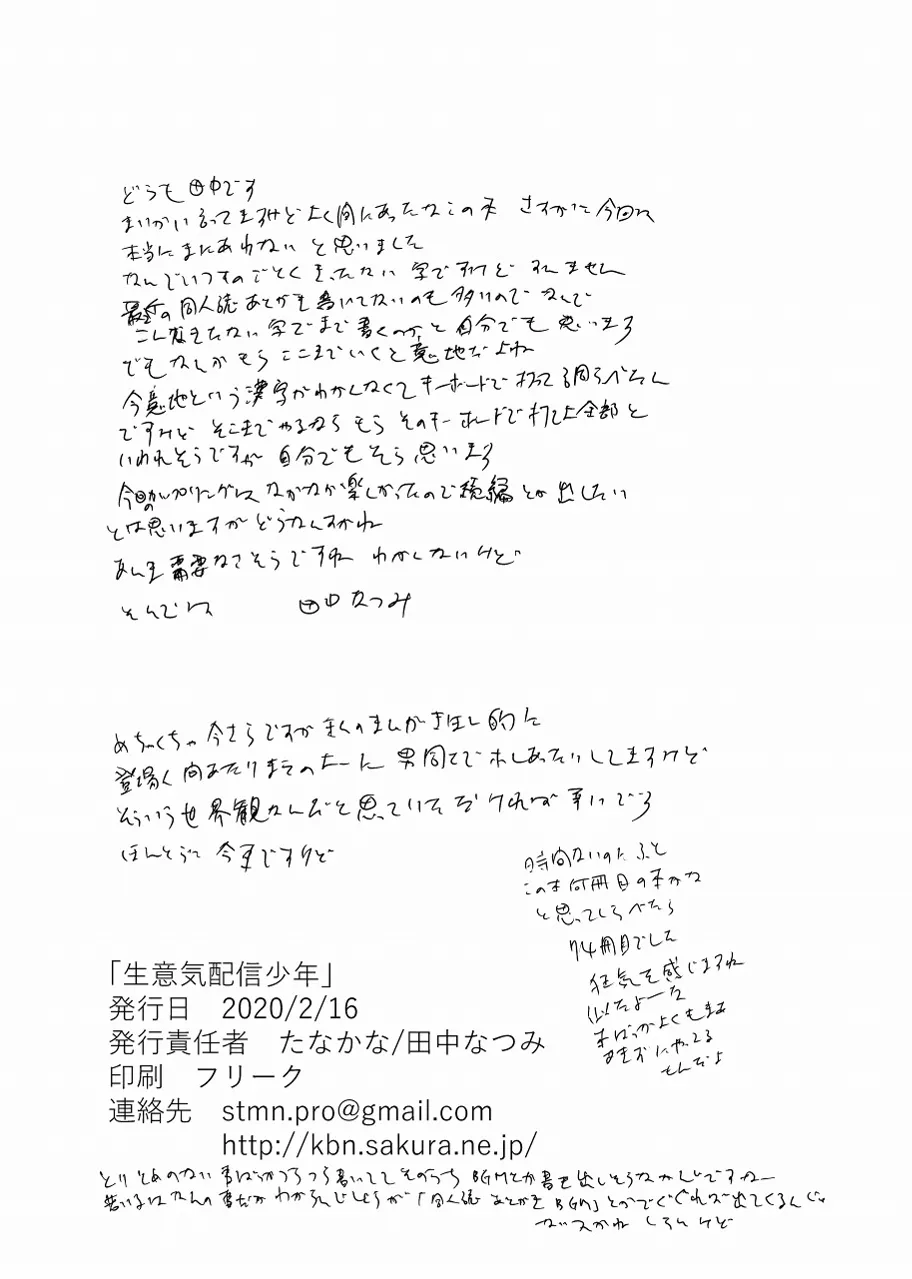 どうも田中です
まいかい言ってますけどよく間にあったなこの本 さすがに今回は
本当にまにあわないと思いました
なんでいつものごとくきったない字ですけどすいません
最近の同人誌あとがき書いてないのも多いのでなんで
こんなきたない字でまで書くのかと自分でも思います
でもなんかもうここまでいくと意地だよね
今意地という漢字がわかんなくてキーボードで打って調べたん
ですけどそこまでやるならもうそのキーボードで打てよ全部と
いわれそうですが自分でもそう思います
今回のカップリングはなかなか楽しかったので続編とか出したい
とは思いますがどうなんすかね
あんま需要なさそうですね わかんないけど
そんでは 田中なつみ
めちゃくちゃ今さらですがぼくのまんが
登場 男同士で してますけど
そういう世界観なんだと思っていただければ幸いです
ほんとうに今更ですけど
時間ないのにふと
この本何冊目の本かな
と思ってしらべたら
74冊目でした
狂気を感じますね
似たよーな
本ばっかよくもまあ
あきずにやってる
もんだよ
「生意気配信少年」
発行日 2020/2/16
発行責任者 たなかな/田中なつみ
印刷 フリーク
連絡先 stmn.pro@gmail.com
http://kbn.sakura.ne.jp/
とりとめのない事ばっかつらつら書いててそのうちBGMとか書き出しそうなかんじですねー
若い子はなんの事だかわからんでしょうが「同人誌 あとがき BGM」とかでぐぐれば出てくるんじゃ
ないっスかね しらんけど